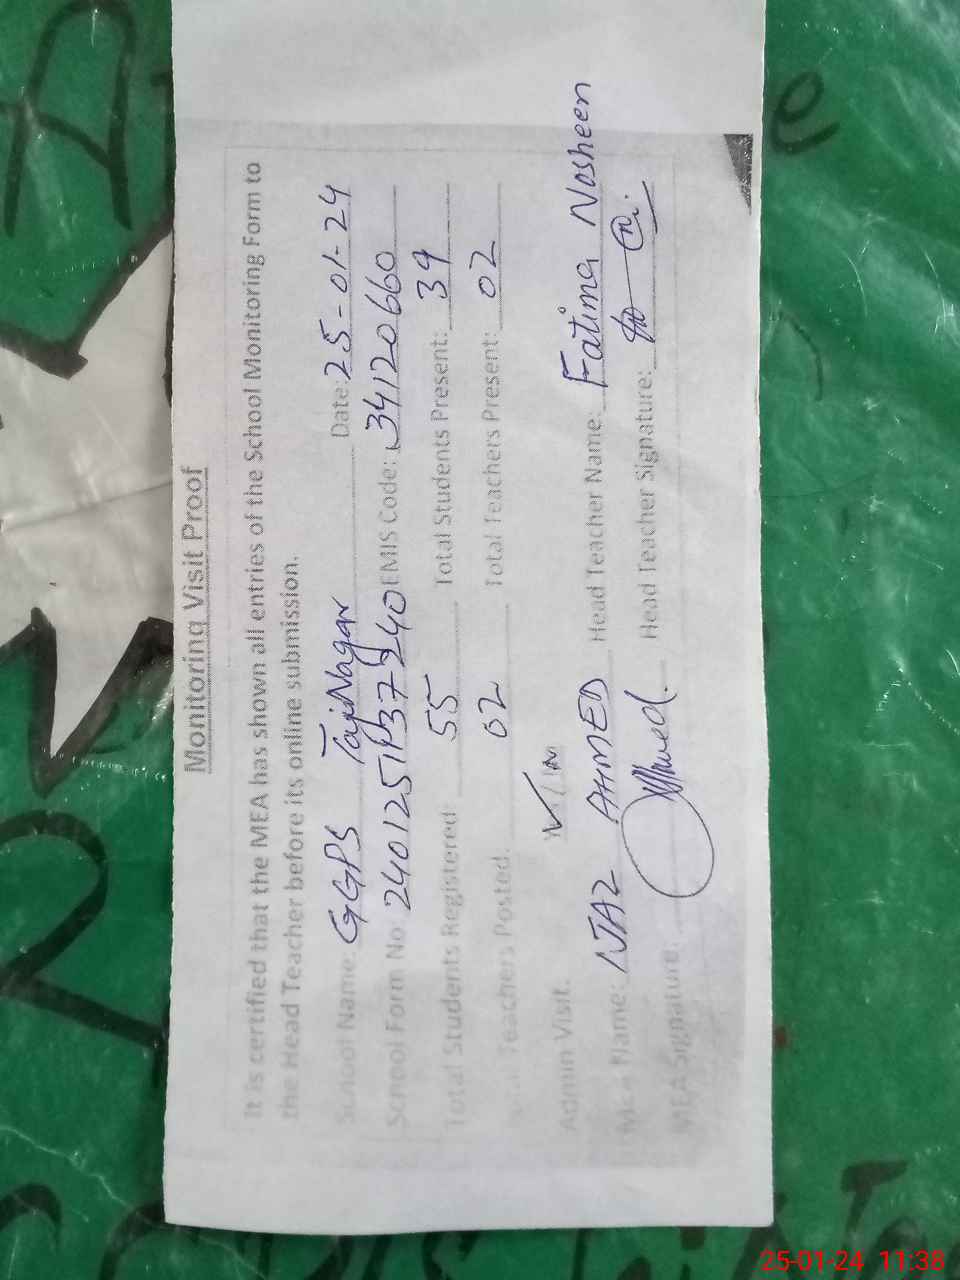 Monitoring Visit Proof
It is certified that the MEA has shown all entries of the School Monitoring Form to
the Head Teacher before its online submission.
School Name: GGPS Taji Nagar Date: 25-01-24
School Form No: EMIS Code: 34120660
Total Students Registered 55 Total Students Present: 39
Teachers Posted. 02 Total Teachers Present: 02
Admin Visit.
Name: NIAZ AHMED Head Teacher Name: Fatima Nosheen
MEA Signature: Head Teacher Signature:
25-01-24 11:38